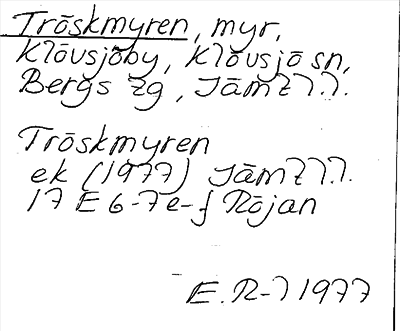 Tröskmyren, myr,
Klövsjöby, Klövsjö sn,
Bergs tg, Jämtl.
Tröskmyren
ek (1977) Jämtl.
17 E 6-7 e-f Röjan
E. R-l 1977